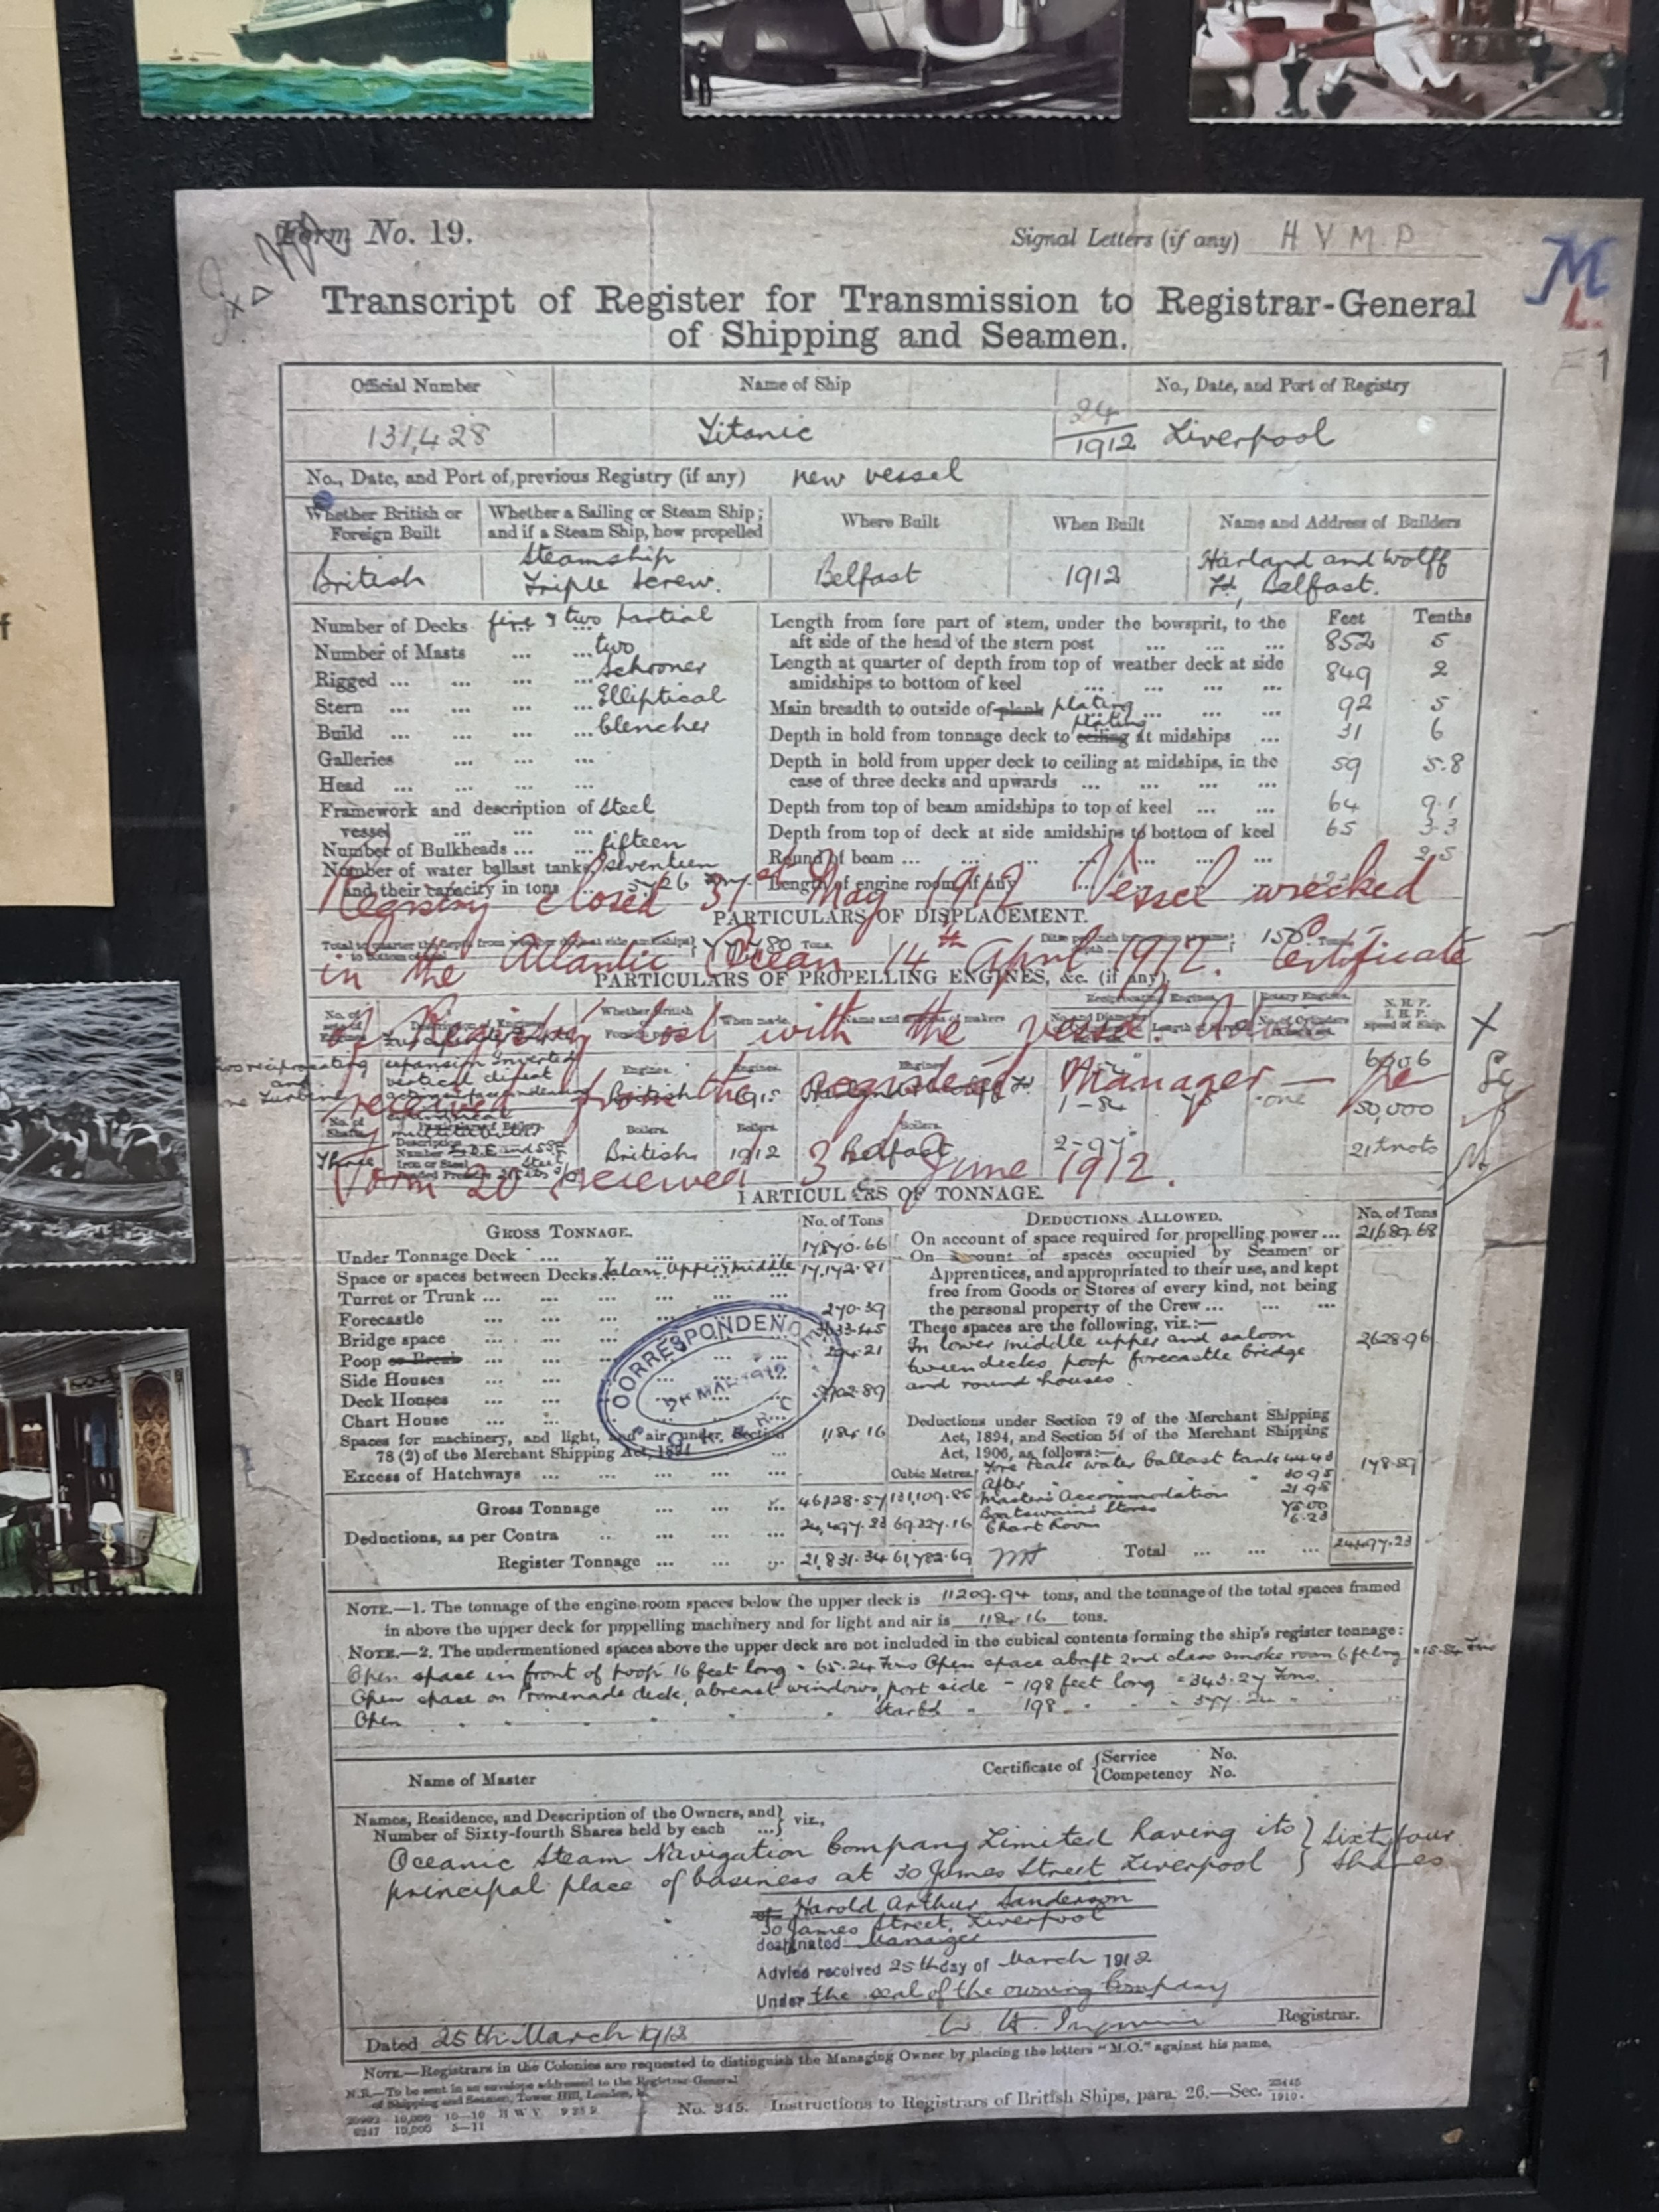 Form No. 19.
Signal Letters (if any) H V M P
M
L.
Transcript of Register for Transmission to Registrar-General
of Shipping and Seamen.
Official Number Name of Ship No., Date, and Port of Registry
131,428 Titanic 24/1912 Liverpool
No., Date, and Port of previous Registry (if any) new vessel
Whether British or Foreign Built
Whether a Sailing or Steam Ship; and if a Steam Ship, how propelled
Where Built When Built Name and Address of Builders
British Steamship Triple Screw. Belfast 1912 Harland and Wolff Ld, Belfast.
Number of Decks five & two partial
Number of Masts ... ... two
Rigged ... ... ... ... Schooner
Stern ... ... ... ... Elliptical
Build ... ... ... ... Clencher
Galleries ... ... ...
Head ... ... ... ...
Framework and description of vessel ... ... ... Steel
Number of Bulkheads ... ... fifteen
Number of water ballast tanks, seventeen
and their capacity in tons ...
Feet Tenths
Length from fore part of stem, under the bowsprit, to the
aft side of the head of the stern post ... ... ... 852 5
Length at quarter of depth from top of weather deck at side
amidships to bottom of keel ... ... ... ... 849 2
Main breadth to outside of plank plating ... ... ... 92 5
Depth in hold from tonnage deck to ceiling plating at midships ... 31 6
Depth in hold from upper deck to ceiling at midships, in the
case of three decks and upwards ... ... ... ... 59 5.8
Depth from top of beam amidships to top of keel ... ... 64 9.1
Depth from top of deck at side amidships to bottom of keel 65 3.3
Round of beam ... ... ... ... ... ... 2.5
Length of engine room, if any
Registry closed 31st May 1912 Vessel wrecked
PARTICULARS OF DISPLACEMENT.
in the Atlantic Ocean 14th April 1912. Certificate
PARTICULARS OF PROPELLING ENGINES, &c. (if any)
of Registry lost with the vessel. Advice
received from the registered Manager — per
Form 20 received 3 June 1912.
Engines. Engines.
Boilers. Boilers. Boilers.
Three British 1912 Belfast
N.H.P.
I.H.P.
Speed of Ship.
6906
50,000
21 knots
PARTICULARS OF TONNAGE.
GROSS TONNAGE. No. of Tons
Under Tonnage Deck ... 17,870.66
Space or spaces between Decks Saloon Upper & middle 17,142.81
Turret or Trunk ... ... ... ... ...
Forecastle ... ... ... ... ... 270.39
Bridge space ... ... ... ...
Poop or Break ... ... ... ...
Side Houses ... ... ... ...
Deck Houses ... ... ...
Chart House ... ...
Spaces for machinery, and light, and air, under Section
78 (2) of the Merchant Shipping Act, 1894 ... 1184.16
Excess of Hatchways ... ... ... ... ...
Cubic Metres.
Gross Tonnage ... ... ... 46,128.57 131,109.86
Deductions, as per Contra ... ... ... 24,497.23 69,327.16
Register Tonnage ... ... ... 21,831.34 61,782.69
CORRESPONDENCE
MAR 1912
DEDUCTIONS ALLOWED. No. of Tons
On account of space required for propelling power ... 21,689.68
On account of spaces occupied by Seamen or
Apprentices, and appropriated to their use, and kept
free from Goods or Stores of every kind, not being
the personal property of the Crew ... ... ...
These spaces are the following, viz.:—
In lower middle upper and saloon 2628.96
tween decks, poop forecastle bridge
and round houses.
Deductions under Section 79 of the Merchant Shipping
Act, 1894, and Section 54 of the Merchant Shipping
Act, 1906, as follows:—
Fore peak water ballast tank 178.59
After " "
Master's Accommodation
Boatswain's Stores
Chart Room
Total ... ... ... 24,497.23
NOTE.—1. The tonnage of the engine room spaces below the upper deck is 11209.94 tons, and the tonnage of the total spaces framed
in above the upper deck for propelling machinery and for light and air is 1184.16 tons.
NOTE.—2. The undermentioned spaces above the upper deck are not included in the cubical contents forming the ship's register tonnage:
Open space in front of poop 16 feet long = 65.24 Tons Open space abaft 2nd class smoke room 6 ft long = 15.84 Tons
Open space on Promenade deck, abreast windows, port side - 198 feet long = 343.27 Tons.
Open " " " " " Starbd " 198 " " = 377.24 "
Name of Master Certificate of { Service No.
Competency No.
Names, Residence, and Description of the Owners, and
Number of Sixty-fourth Shares held by each ... } viz.,
Oceanic Steam Navigation Company Limited having its } Sixty four
principal place of business at 30 James Street Liverpool } Shares
of Harold Arthur Sanderson
30 James Street, Liverpool
designated Manager
Advice received 25th day of March 1912
Under the seal of the owning Company
Dated 25th March 1912 Registrar.
NOTE.—Registrars in the Colonies are requested to distinguish the Managing Owner by placing the letters "M.O." against his name.
N.B.—To be sent in an envelope addressed to the Registrar-General
of Shipping and Seamen, Tower Hill, London, E.
No. 345. Instructions to Registrars of British Ships, para. 26.—Sec.
6247 10,000 5—11